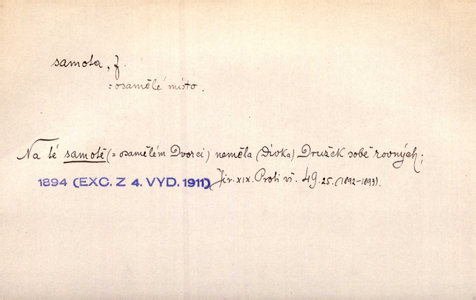 samota, f.
= osamělé místo.
Na té samotě (= osamělém Dvorci) neměla (Dívka) Družek sobě rovných;
1894 (EXC. Z 4. VYD. 1911) Jir. XIX. Proti vš. 49. 25. (1892-1893).